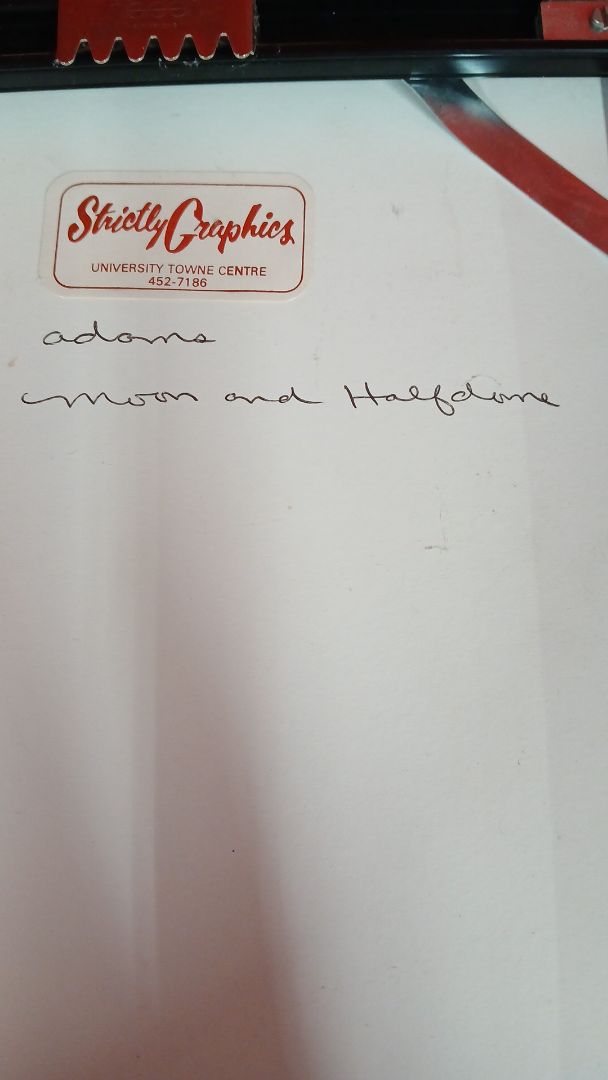 Strictly Graphics
UNIVERSITY TOWNE CENTRE
452-7186
adams
Moon and Halfdome